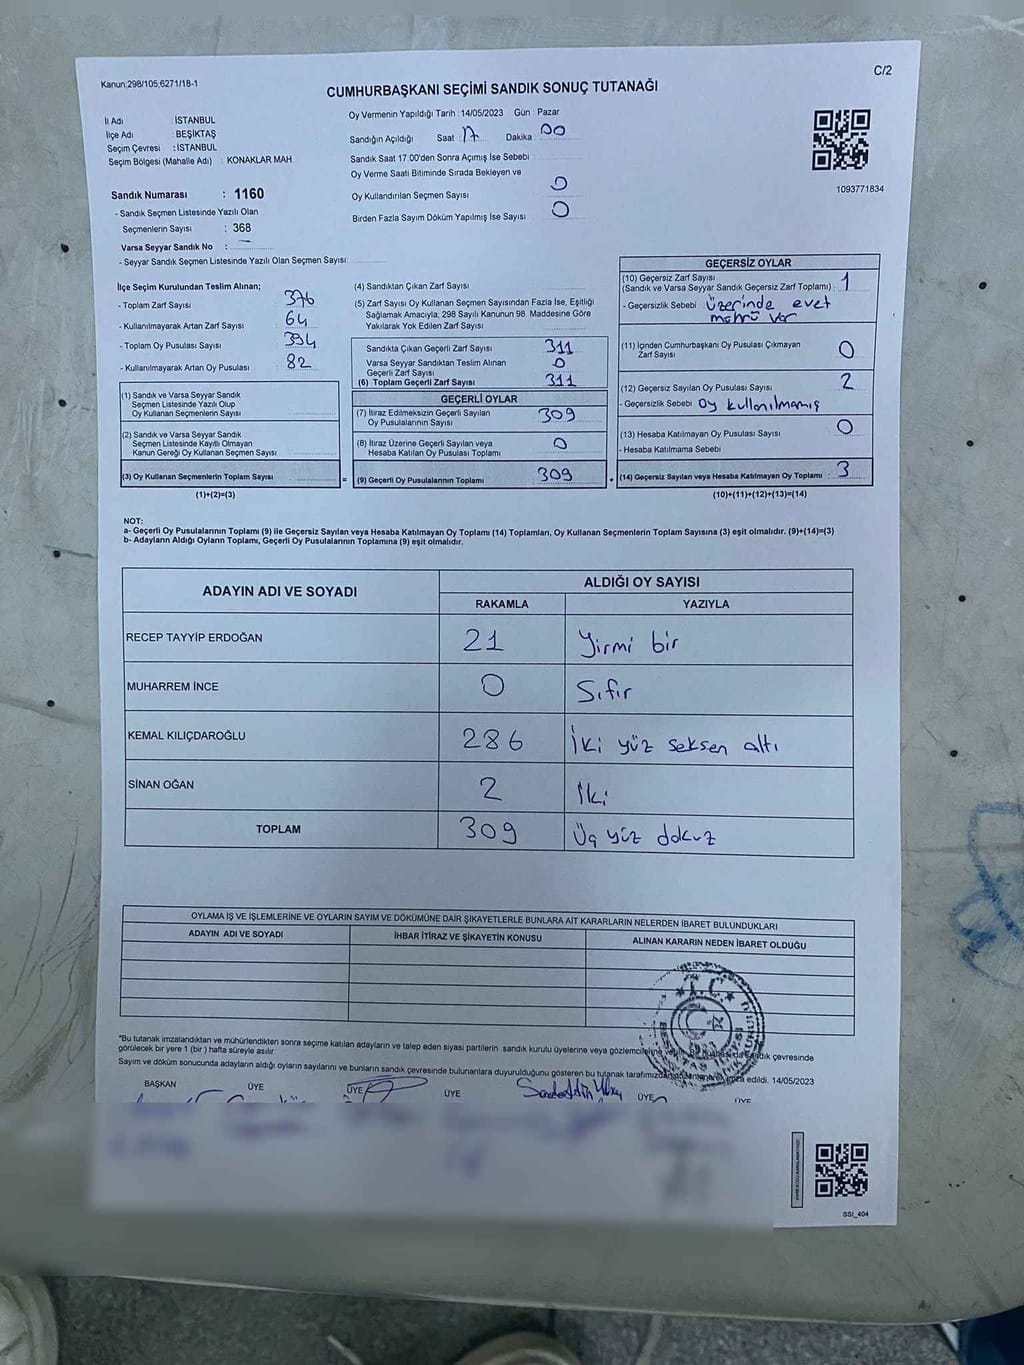 Kanun;298/105,6271/18-1
C/2
CUMHURBAŞKANI SEÇİMİ SANDIK SONUÇ TUTANAĞI
İl Adı : İSTANBUL
İlçe Adı : BEŞİKTAŞ
Seçim Çevresi : İSTANBUL
Seçim Bölgesi (Mahalle Adı) : KONAKLAR MAH
Sandık Numarası : 1160
- Sandık Seçmen Listesinde Yazılı Olan
Seçmenlerin Sayısı : 368
Varsa Seyyar Sandık No : —
- Seyyar Sandık Seçmen Listesinde Yazılı Olan Seçmen Sayısı:
Oy Vermenin Yapıldığı Tarih :14/05/2023 Gün : Pazar
Sandığın Açıldığı Saat : 17 Dakika : 00
Sandık Saat 17:00'den Sonra Açımış İse Sebebi
Oy Verme Saati Bitiminde Sırada Bekleyen ve
Oy Kullandırılan Seçmen Sayısı 0
Birden Fazla Sayım Döküm Yapılmış İse Sayısı 0
1093771834
İlçe Seçim Kurulundan Teslim Alınan;
- Toplam Zarf Sayısı : 376
- Kullanılmayarak Artan Zarf Sayısı : 64
- Toplam Oy Pusulası Sayısı : 394
- Kullanılmayarak Artan Oy Pusulası : 82
(1) Sandık ve Varsa Seyyar Sandık
Seçmen Listesinde Yazılı Olup
Oy Kullanan Seçmenlerin Sayısı
(2) Sandık ve Varsa Seyyar Sandık
Seçmen Listesinde Kayıtlı Olmayan
Kanun Gereği Oy Kullanan Seçmen Sayısı
(3) Oy Kullanan Seçmenlerin Toplam Sayısı
(1)+(2)=(3)
(4) Sandıktan Çıkan Zarf Sayısı
(5) Zarf Sayısı Oy Kullanan Seçmen Sayısından Fazla İse, Eşitliği
Sağlamak Amacıyla, 298 Sayılı Kanunun 98. Maddesine Göre
Yakılarak Yok Edilen Zarf Sayısı
Sandıkta Çıkan Geçerli Zarf Sayısı 311
Varsa Seyyar Sandıktan Teslim Alınan
Geçerli Zarf Sayısı 0
(6) Toplam Geçerli Zarf Sayısı 311
GEÇERLİ OYLAR
(7) İtiraz Edilmeksizin Geçerli Sayılan
Oy Pusulalarının Sayısı 309
(8) İtiraz Üzerine Geçerli Sayılan veya
Hesaba Katılan Oy Pusulası Toplamı 0
= (9) Geçerli Oy Pusulalarının Toplamı 309 +
GEÇERSİZ OYLAR
(10) Geçersiz Zarf Sayısı
(Sandık ve Varsa Seyyar Sandık Geçersiz Zarf Toplamı) : 1
- Geçersizlik Sebebi üzerinde evet
mührü var
(11) İçinden Cumhurbaşkanı Oy Pusulası Çıkmayan
Zarf Sayısı 0
(12) Geçersiz Sayılan Oy Pusulası Sayısı 2
- Geçersizlik Sebebi Oy kullanılmamış
(13) Hesaba Katılmayan Oy Pusulası Sayısı 0
- Hesaba Katılmama Sebebi
(14) Geçersiz Sayılan veya Hesaba Katılmayan Oy Toplamı 3
(10)+(11)+(12)+(13)=(14)
NOT:
a- Geçerli Oy Pusulalarının Toplamı (9) ile Geçersiz Sayılan veya Hesaba Katılmayan Oy Toplamı (14) Toplamları, Oy Kullanan Seçmenlerin Toplam Sayısına (3) eşit olmalıdır. (9)+(14)=(3)
b- Adayların Aldığı Oyların Toplamı, Geçerli Oy Pusulalarının Toplamına (9) eşit olmalıdır.
ADAYIN ADI VE SOYADI
ALDIĞI OY SAYISI
RAKAMLA YAZIYLA
RECEP TAYYİP ERDOĞAN 21 Yirmi bir
MUHARREM İNCE 0 Sıfır
KEMAL KILIÇDAROĞLU 286 İki yüz seksen altı
SİNAN OĞAN 2 İki
TOPLAM 309 Üç yüz dokuz
OYLAMA İŞ VE İŞLEMLERİNE VE OYLARIN SAYIM VE DÖKÜMÜNE DAİR ŞİKAYETLERLE BUNLARA AİT KARARLARIN NELERDEN İBARET BULUNDUKLARI
ADAYIN ADI VE SOYADI İHBAR İTİRAZ VE ŞİKAYETİN KONUSU ALINAN KARARIN NEDEN İBARET OLDUĞU
T.C.
*Bu tutanak imzalandıktan ve mühürlendikten sonra seçime katılan adayların ve talep eden siyasi partilerin sandık kurulu üyelerine veya gözlemcilerine sandık çevresinde
görülecek bir yere 1 (bir) hafta süreyle asılır.
Sayım ve döküm sonucunda adayların aldığı oyların sayılarını ve bunların sandık çevresinde bulunanlara duyurulduğunu gösteren bu tutanak tarafımızdan imza edildi. 14/05/2023
BAŞKAN ÜYE ÜYE ÜYE ÜYE ÜYE
SSİ_404